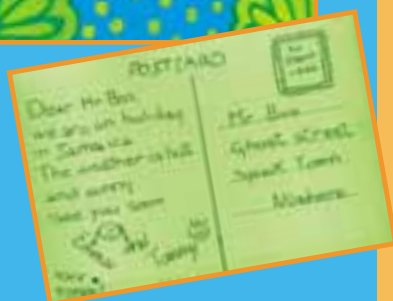 POSTCARD
Dear Mr Boo
we are on holiday
in Jamaica
The weather is hot
and sunny
See you soon
and
Mr Boo
Ghost street
Spook Town
Nowhere